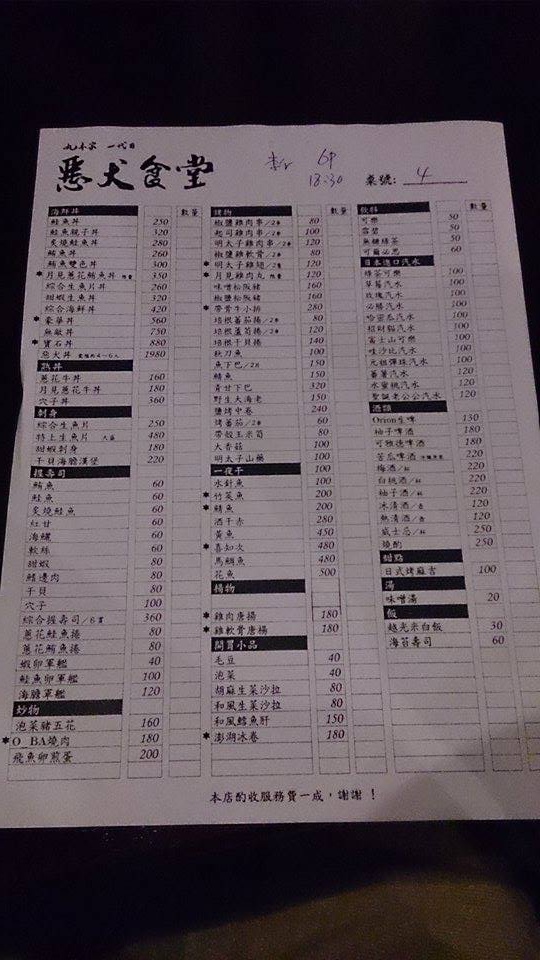 丸小家 一代目
惡犬食堂
6P
18:30
桌號: 4
海鮮丼 數量
鮭魚丼 250
鮭魚親子丼 320
炙燒鮭魚丼 280
鮪魚丼 260
鮪魚雙色丼 300
*月見蔥花鮪魚丼 350
綜合生魚片丼 260
甜蝦生魚丼 320
綜合海鮮丼 420
*豪華丼 560
無敵丼 750
*寶石丼 880
惡犬丼 1980
熟丼
蔥花牛丼 160
月見蔥花牛丼 180
穴子丼 360
刺身
綜合生魚片 250
特上生魚片 480
甜蝦刺身 180
干貝海膽漢堡 220
握壽司
鮪魚 60
鮭魚 60
炙燒鮭魚 60
紅甘 60
海鱺 60
軟絲 60
甜蝦 80
鰭邊肉 80
干貝 80
穴子 100
綜合握壽司/6貫 360
蔥花鮭魚捲 80
蔥花鮪魚捲 80
蝦卵軍艦 40
鮭魚卵軍艦 100
海膽軍艦 120
炒物
泡菜豬五花 160
*O_BA燒肉 180
飛魚卵煎蛋 200
烤物 數量
椒鹽雞肉串/2串 80
起司雞肉串/2串 100
明太子雞肉串/2串 120
椒鹽雞軟骨/2串 80
*明太子雞翅/2隻 120
*月見雞肉丸 120
味噌松阪豬 160
椒鹽松阪豬 160
*帶骨牛小排 280
培根蕃茄捲/2串 80
培根蘆筍捲/2串 120
培根干貝捲 140
秋刀魚 100
魚下巴/2片 150
鯖魚 150
青甘下巴 320
野生大海老 150
鹽烤中卷 240
烤蕃茄/2串 60
帶殼玉米筍 80
大香菇 100
明太子山藥 100
一夜干 100
水針魚 100
*竹莢魚 200
*鯖魚 200
酒干赤 280
黃魚 450
*喜知次 480
馬頭魚 480
花魚 500
揚物
*雞肉唐揚 180
*雞軟骨唐揚 180
開胃小品
毛豆 40
泡菜 40
胡麻生菜沙拉 80
和風生菜沙拉 80
和風鱈魚肝 150
*澎湖冰卷 180
飲料 數量
可樂 50
雪碧 50
無糖綠茶 50
可爾必思 60
日本進口汽水
綠茶可樂 100
草莓汽水 100
玫瑰汽水 100
必勝汽水 100
哈密瓜汽水 100
招財貓汽水 100
富士山可樂 100
哇沙比汽水 100
元祖彈珠汽水 100
蕃薯汽水 120
水蜜桃汽水 120
聖誕老公公汽水 120
酒類
Orion生啤 130
柚子啤酒 180
可雅德啤酒 180
苦瓜啤酒 220
梅酒/杯 220
白桃酒/杯 220
柚子酒/杯 220
冰清酒/壺 220
熱清酒/壺 220
威士忌/杯 250
燒酌 250
甜點
日式烤麻吉 100
湯
味噌湯 20
飯
越光米白飯 30
海苔壽司 60
本店酌收服務費一成,謝謝!